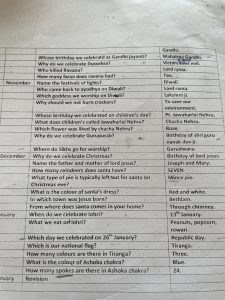 Gandhi.
Whose birthday we celebrated as Gandhi Jayanti? Mahatma Gandhi.
Why do we celebrate Dussehra? Victory over evil.
Who killed Ravana? Lord rama.
How many faces does ravana had? Ten.
November Name the festivals of lights? Diwali.
Who came back to ayodhya on Diwali? Lord rama.
Which goddess we worship on Diwali? Lakshmi ji.
Why should we not burn crackers? To save our
environment.
Whose birthday we celebrated on children's day? Pt. Jawaharlal Nehru.
What does children's called Jawaharlal Nehru? Chacha Nehru.
Which flower was liked by chacha Nehru? Rose.
Why do we celebrate Gurupurab? Birthday of shri guru
nanak dev ji.
Where do Sikhs go for worship? Gurudwara.
December Why do we celebrate Christmas? Birthday of lord jesus.
Name the father and mother of lord jesus? Joseph and Mary.
How many reindeers does santa have? SEVEN
What type of pie is typically left out for santa on Mince pie.
Christmas eve?
What is the colour of santa's dress? Red and white.
In which town was jesus born? Bethlam.
From where does santa comes in your home? Through chimney.
January When do we celebrate lohri? 13th January.
What we eat of lohri? Peanuts, popcorn,
rewari.
Which day we celebrated on 26th January? Republic day.
Which is our national flag? Tiranga.
How many colours are there in Tiranga? Three.
What is the colour of Ashoka chakra? Blue.
How many spokes are there in Ashoka chakra? 24.
January Revision